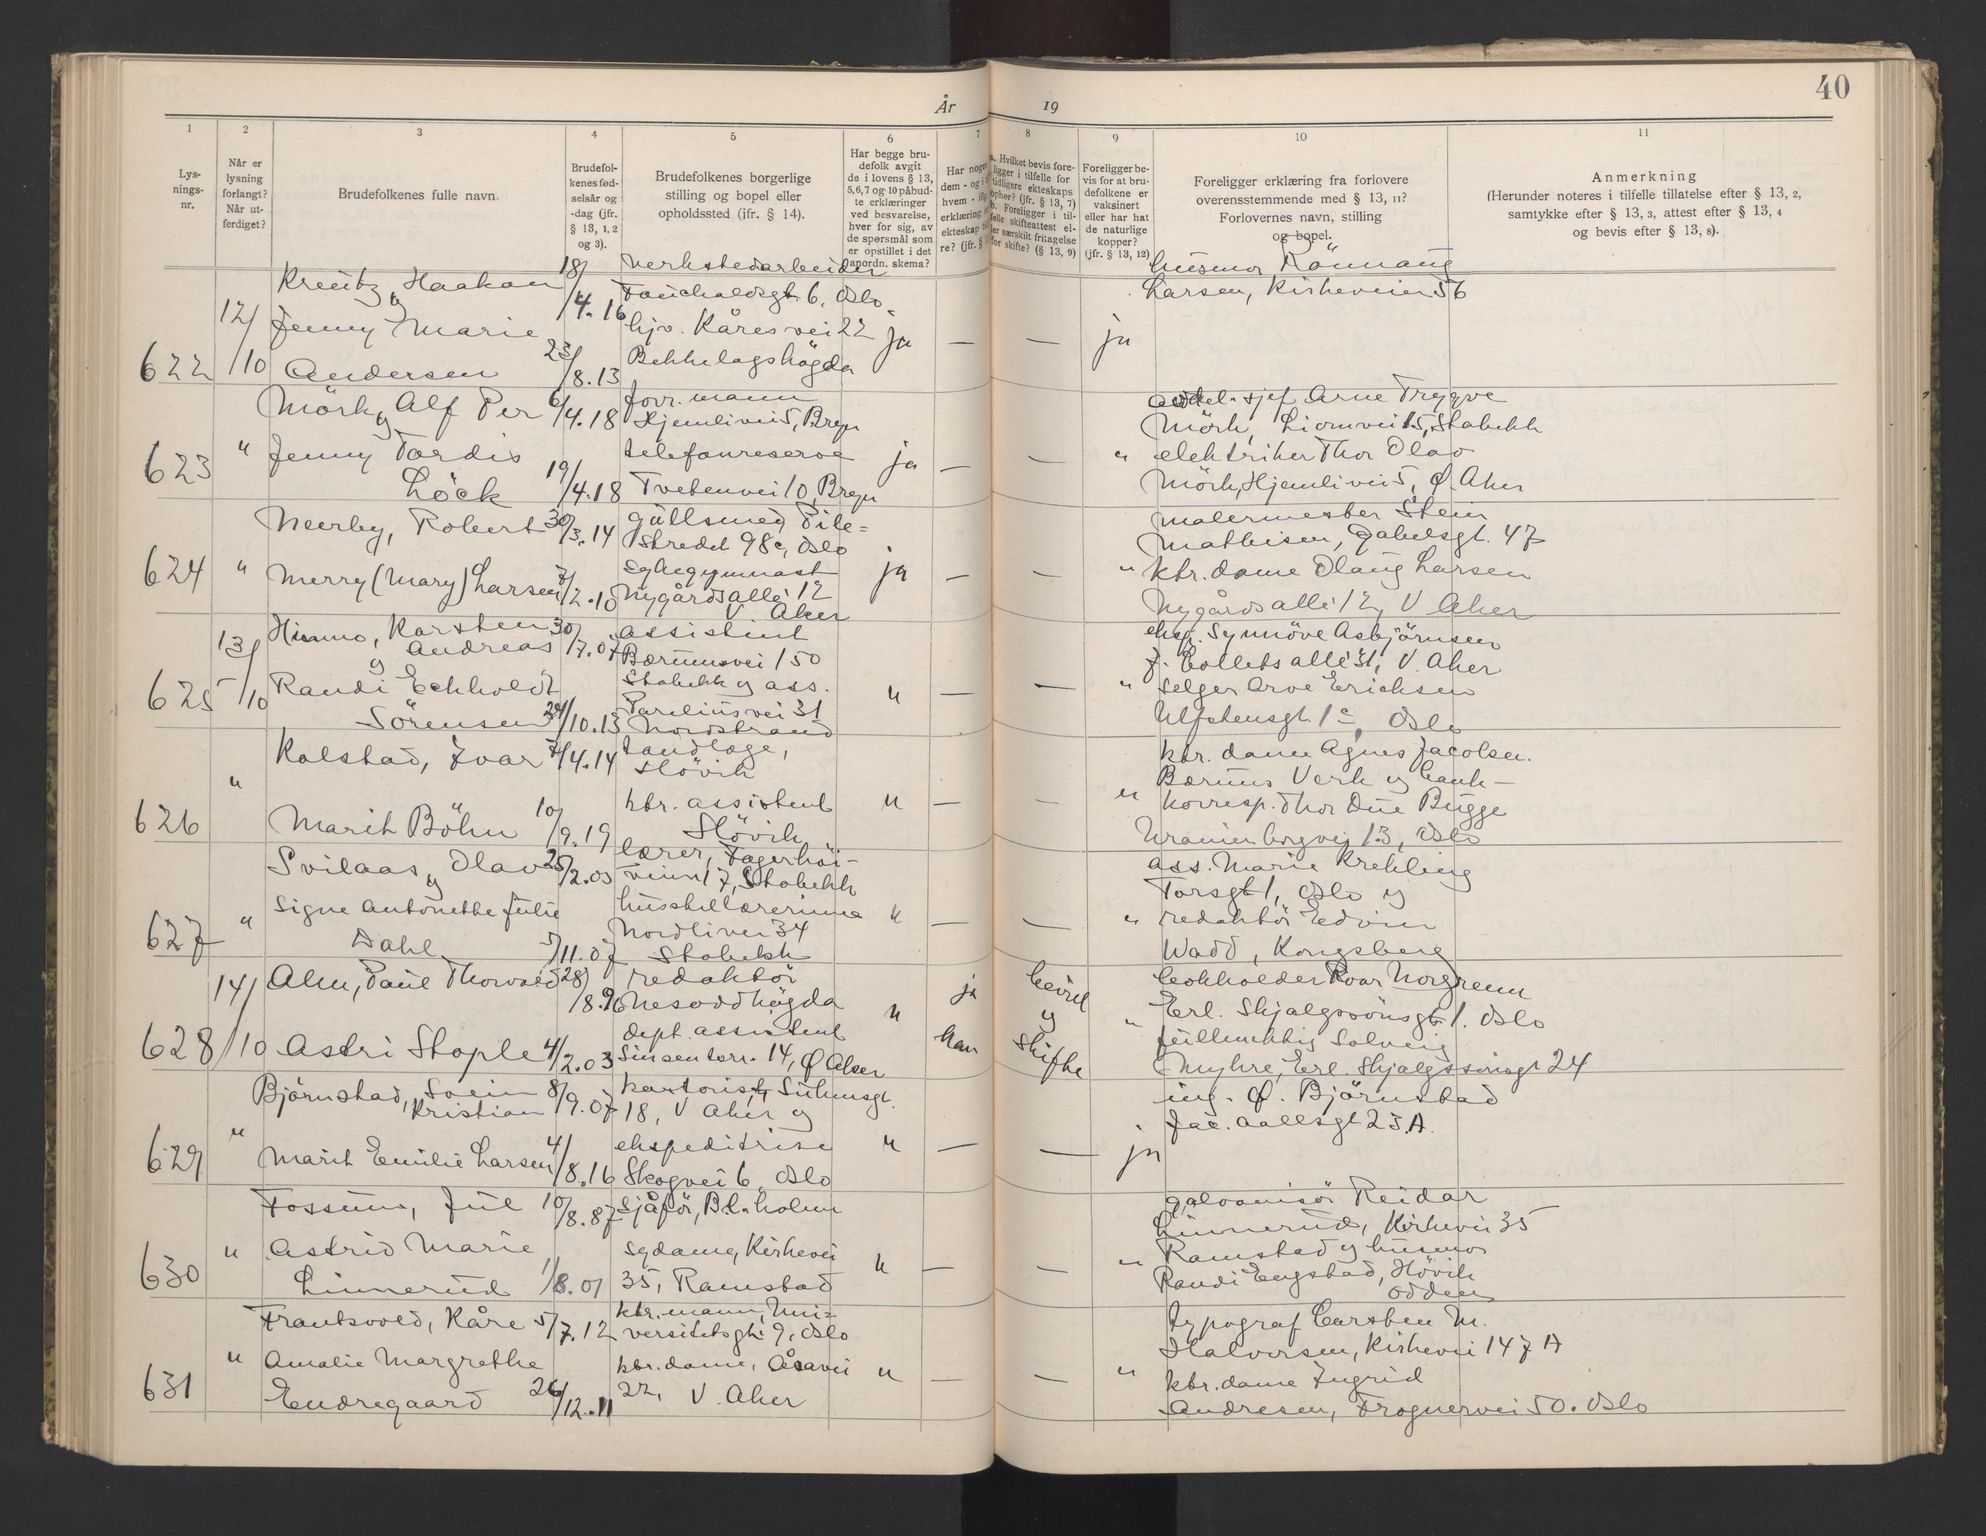 40
År 19
1 2 3 4 5 6 7 8 9 10 11
Lys-
nings-
nr.
Når er
lysning
forlangt?
Når ut-
ferdiget?
Brudefolkenes fulle navn.
Brudefol-
kenes fød-
selsår og
-dag (jfr.
§ 13, 1, 2
og 3).
Brudefolkenes borgerlige
stilling og bopel eller
opholdssted (jfr. § 14).
Har begge bru-
defolk avgit
de i lovens § 13,
5,6,7 og 10 påbud-
te erklæringer
ved besvarelse,
hver for sig, av
de spørsmål som
er opstillet i det
anordn. skema?
Har nogen
dem - og i
hvem -
erklæring
ekteskap
re? (jfr. §
a. Hvilket bevis fore-
ligger i tilfelle for
tidligere ekteskaps
ophør? (jfr. § 13, 7)
b. Foreligger i til-
felle skifteattest el-
ler særskilt fritagelse
for skifte? (§ 13, 9)
Foreligger be-
vis for at bru-
defolkene er
vaksinert
eller har hat
de naturlige
kopper?
(jfr. § 13, 12)
Foreligger erklæring fra forlovere
overensstemmende med § 13, 11?
Forlovernes navn, stilling
og bopel.
Anmerkning
(Herunder noteres i tilfelle tillatelse efter § 13, 2,
samtykke efter § 13, 3, attest efter § 13, 4
og bevis efter § 13, 8).
622 12/10
Kreutz, Haakon 18/4.16
y
Jenny Marie
Andersen 23/8.13
verkstedarbeider
Fauchaldsgt. 6, Oslo
hjv. Kåresvei 22
Bekkelagshögda
ja — — ja
husmor Rönnaug
Larsen, Kirkeveien 56
623 "
Mörk, Alf Per 6/4.18
y
Jenny Tordis
Löck 19/4.18
forr.mann
Hjemlivei 5, Bryn
telefonreserve
Tvetenvei 10, Bryn
ja — — "
avdel.sjef Arne Trygve
Mörk, Liomvei 15, Stabekk
elektriker Thor Olav
Mörk, Hjemlivei 5, Ø. Aker
624 "
Neerby, Robert 30/3.14
Merry (Mary) Larsen 7/2.10
gullsmed Pile-
stredet 98c, Oslo
sykegymnast
Nygårds allé 12
V Aker
ja — — "
malermester Stein
Mathisen, Gabelsgt. 47
ktr.dame Olaug Larsen
Nygårds allé 12, V Aker
625 13/10
Hinno, Karsten 30/7.07
Andreas
y
Randi Eckholdt
Sörensen 24/10.13
assistent
Bærumsvei 150
Stabekk y ass.
Parelius vei 31
Nordstrand
" — — "
eksp. Synnöve Asbjörnsen
J. Collets allé 31, V. Aker
selger Arve Erichsen
Ulfstensgt. 1c, Oslo
626 "
Kolstad, Ivar 7/4.14
Marit Böhn 10/9.19
tandlæge,
Slövik
ktr. assistent
Slövik
" — — "
ktr. dame Agnes Jacobsen.
Bærums Verk y bank-
korresp. Thor Due Bugge
Uranienborgvei 13, Oslo
627 "
Svilaas, Olav 25/2.03
y
Signe Antonette Julie
Dahl 5/11.07
lærer, Fagerhöi-
veien 17, Stabekk
husstellærerinne
Nordliveien 34
Stabekk
" — — "
ass. Marie Krekling
Torsgt 1, Oslo y
redaktör Edvin
Wadd, Kongsberg
628 14/10
Alm, Paul Thorvald 28/8.96
Astri Stople 4/2.03
redaktör
Nesoddhögda
dept. assistent
Sinsenterr. 14, Ø Aker
" ja
han
bevil
y
skifte
"
bokholder Roar Norgrenn
Erl. Skjalgssönsgt 1. Oslo
fullmektig Solveig
Myhre, Erl. Skjalgssönsgt 24
629 "
Björnstad, Svein 8/9.07
Kristian
Marit Emilie Larsen 4/8.16
kartorist, Suhmsgt.
18, V Aker y
ekspeditrise
Skogvei 6, Oslo
" — — ja
ing. Ø. Björnstad
Jac. Aallsgt 23 A.
630 "
Fossum, Jul 10/8.87
Astrid Marie
Linnerud 1/8.01
sjåför, Bl.holm
sydame, Kirkevei
35, Ramstad
" — — "
galvanisör Reidar
Linnerud, Kirkevei 35
Ramstad y husmor
Randi Engstad, Hövik
odden
631 "
Frantsvold, Kåre 5/7.12
Amalie Margrethe
Endregaard 26/12.11
ktr. mann, Uni-
versitetsgt. 9, Oslo
ktr. dame, Åsavei
22, V. Aker
" — — "
typograf Carsten M.
Halvorsen, Kirkevei 147 A
ktr. dame Ingrid
Andresen, Frognervei 50. Oslo